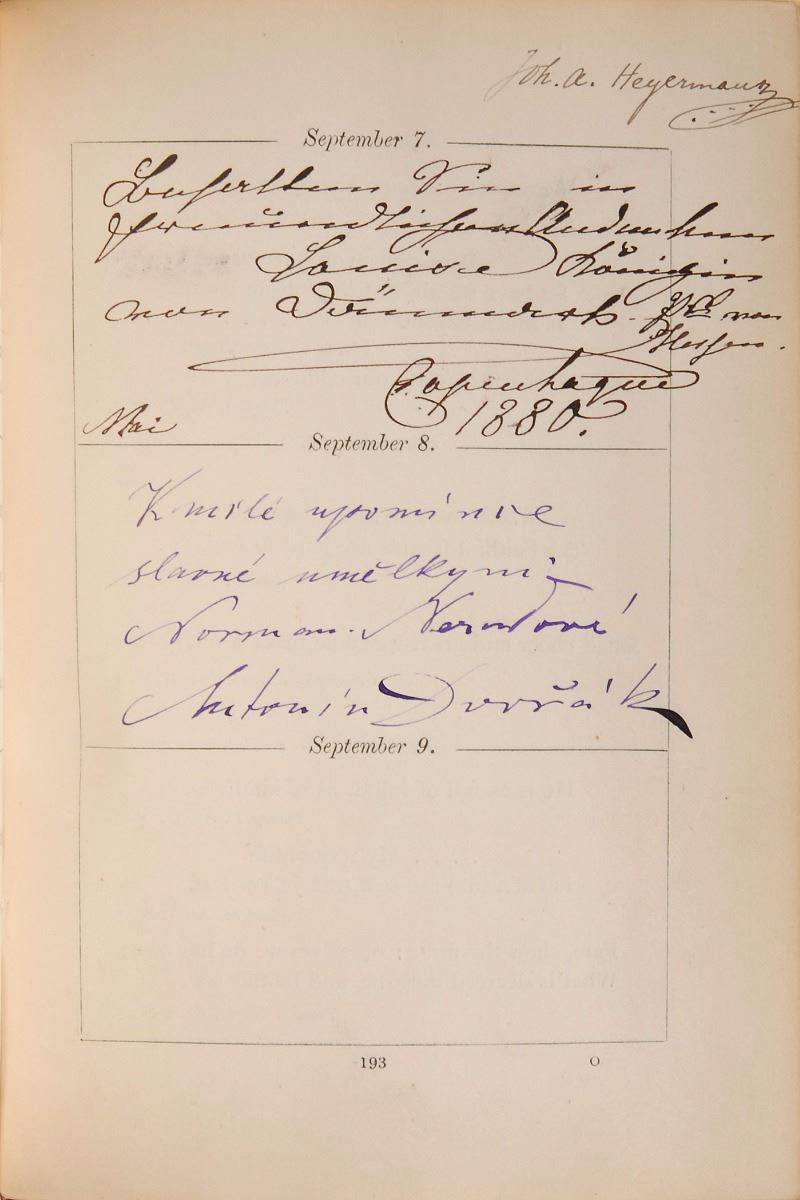 Joh. A. Heyermans
September 7.
Behalten Sie in
freundlichen Andenken
Louise Königin
von Dännemark. Prß von
Hessen.
Copenhague
Mai 1880.
September 8.
K milé upomínce
slavné umělkyni
Norman. Nerudové
Antonín Dvořák
September 9.
193 O